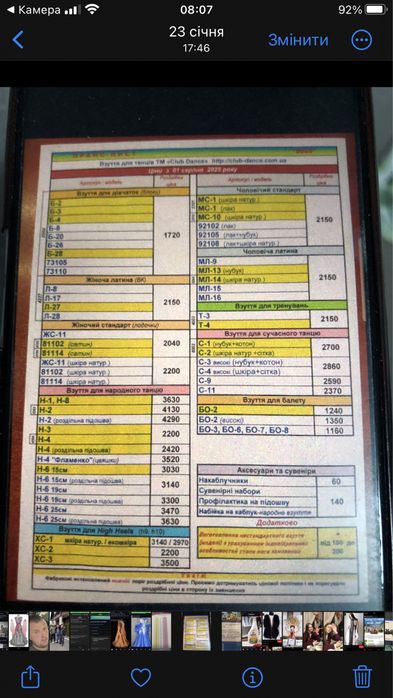 Камера
08:07
92%
23 січня
17:46
Змінити
ПРАЙС-ЛИСТ
Взуття для танців ТМ «Club Dance» http://club-dance.com.ua
Ціни з 01 серпня 2025 року
Артикул / модель
Роздрібна ціна
Взуття для дівчаток (блок)
Б-2
Б-3
Б-4
Б-8
Б-20
Б-26
Б-28
73105
73110
1720
Жіноча латина (БК)
Л-8
Л-17
Л-27
Л-28
2150
Жіночий стандарт (лодочки)
ЖС-11
81102 (сатин)
81114 (сатин)
2040
ЖС-11 (шкіра натур.)
81102 (шкіра натур.)
81114 (шкіра натур.)
2200
Взуття для народного танцю
Н-1, Н-8 3630
Н-2 4130
Н-2 (роздільна підошва) 4290
Н-3
Н-4
2200
Н-4 (роздільна підошва) 2420
Н-4 "Фламенко" (цвяшки) 3520
Н-6 15см 3030
Н-6 15см (роздільна підошва)
Н-6 19см
3140
Н-6 19см (роздільна підошва) 3300
Н-6 25см 3470
Н-6 25см (роздільна підошва) 3630
Взуття для High Heels (h9, h10)
ХС-1 шкіра натур. / екошкіра 3140 / 2970
ХС-2 2200
ХС-3 3500
Артикул / модель
Роздрібна ціна
Чоловічий стандарт
МС-1 (шкіра натур.)
МС-1 (лак)
МС-10 (шкіра натур.)
92102 (лак)
92105 (лак+нубук)
92108 (лак+шкіра натур.)
2150
Чоловіча латина
МЛ-9
МЛ-13 (нубук)
МЛ-14 (шкіра натур.)
МЛ-15
МЛ-16
2150
Взуття для тренувань
Т-3
Т-4
2150
Взуття для сучасного танцю
С-1 (нубук+котон)
С-2 (шкіра натур.+сітка)
2700
С-3 високі (нубук+котон)
С-4 високі (шкіра+сітка)
2860
С-9 2590
С-11 2370
Взуття для балету
БО-2 1240
БО-2 (високі) 1350
БО-3, БО-6, БО-7, БО-8 1160
Аксесуари та сувеніри
Накаблучники 60
Сувенірні набори
Профілактика на підошву
Набійка на каблук-народне взуття
140
Додатково
Виготовлення нестандартного взуття
від 100 до
200
УВАГА!